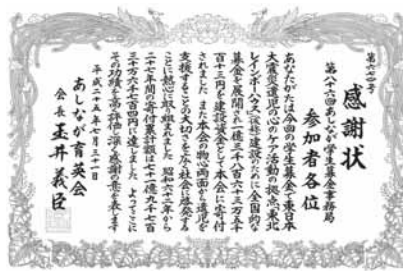 第六七四号
感謝状
第八十六回あしなが学生募金事務局
参加者各位
あなたがたは今回の学生募金で東日本
大震災遺児の心のケア活動の拠点、東北
レインボーハウス(仮称)建設のために全国的な
募金を展開され一億三千八百六十三万五千
百十三円を建設資金として本会に寄付
されました また本会の物心両面から遺児を
支援することの大切さを広く社会に啓発する
ことに熱心に取り組まれました 昭和六十二年から
二十七年間の寄付累計額は七十一億九千七百
三十万六千七百四円に達しました よってここに
その功績を高く評価し深く感謝の意を表します
平成二十五年七月三十一日
あしなが育英会
会長 玉井義臣